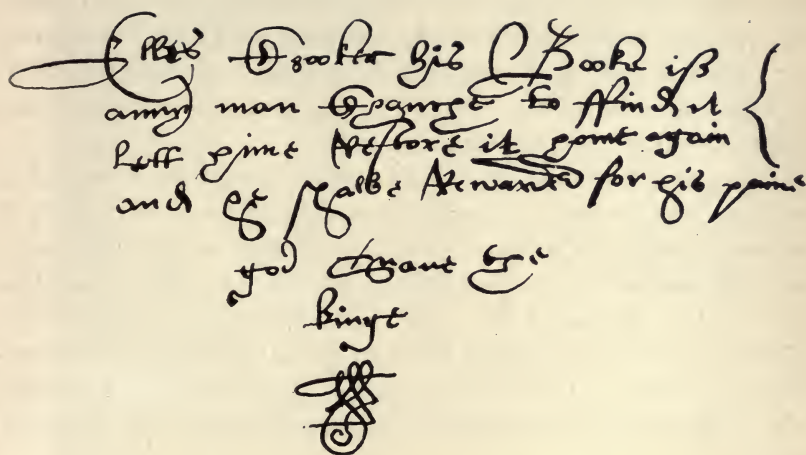 his Booke iff
anny man Chaunce to ffind it
Lett hime Restore it home again
and he shalbe Rewarded for his paine
god Saue the
kinge